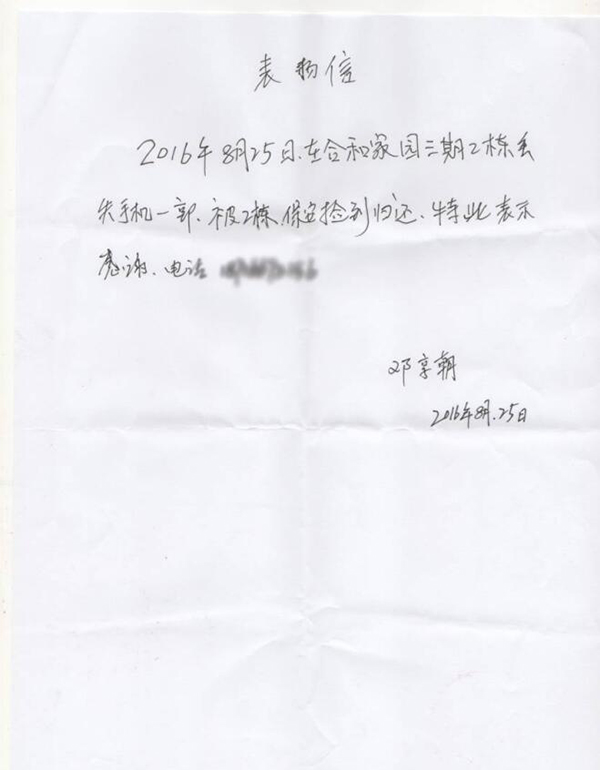 表扬信
2016年8月25日.在合和家园三期2栋丢
失手机一部、被2栋、保安捡到归还、特此表示
感谢、电话
邓享朝
2016年8月.25日